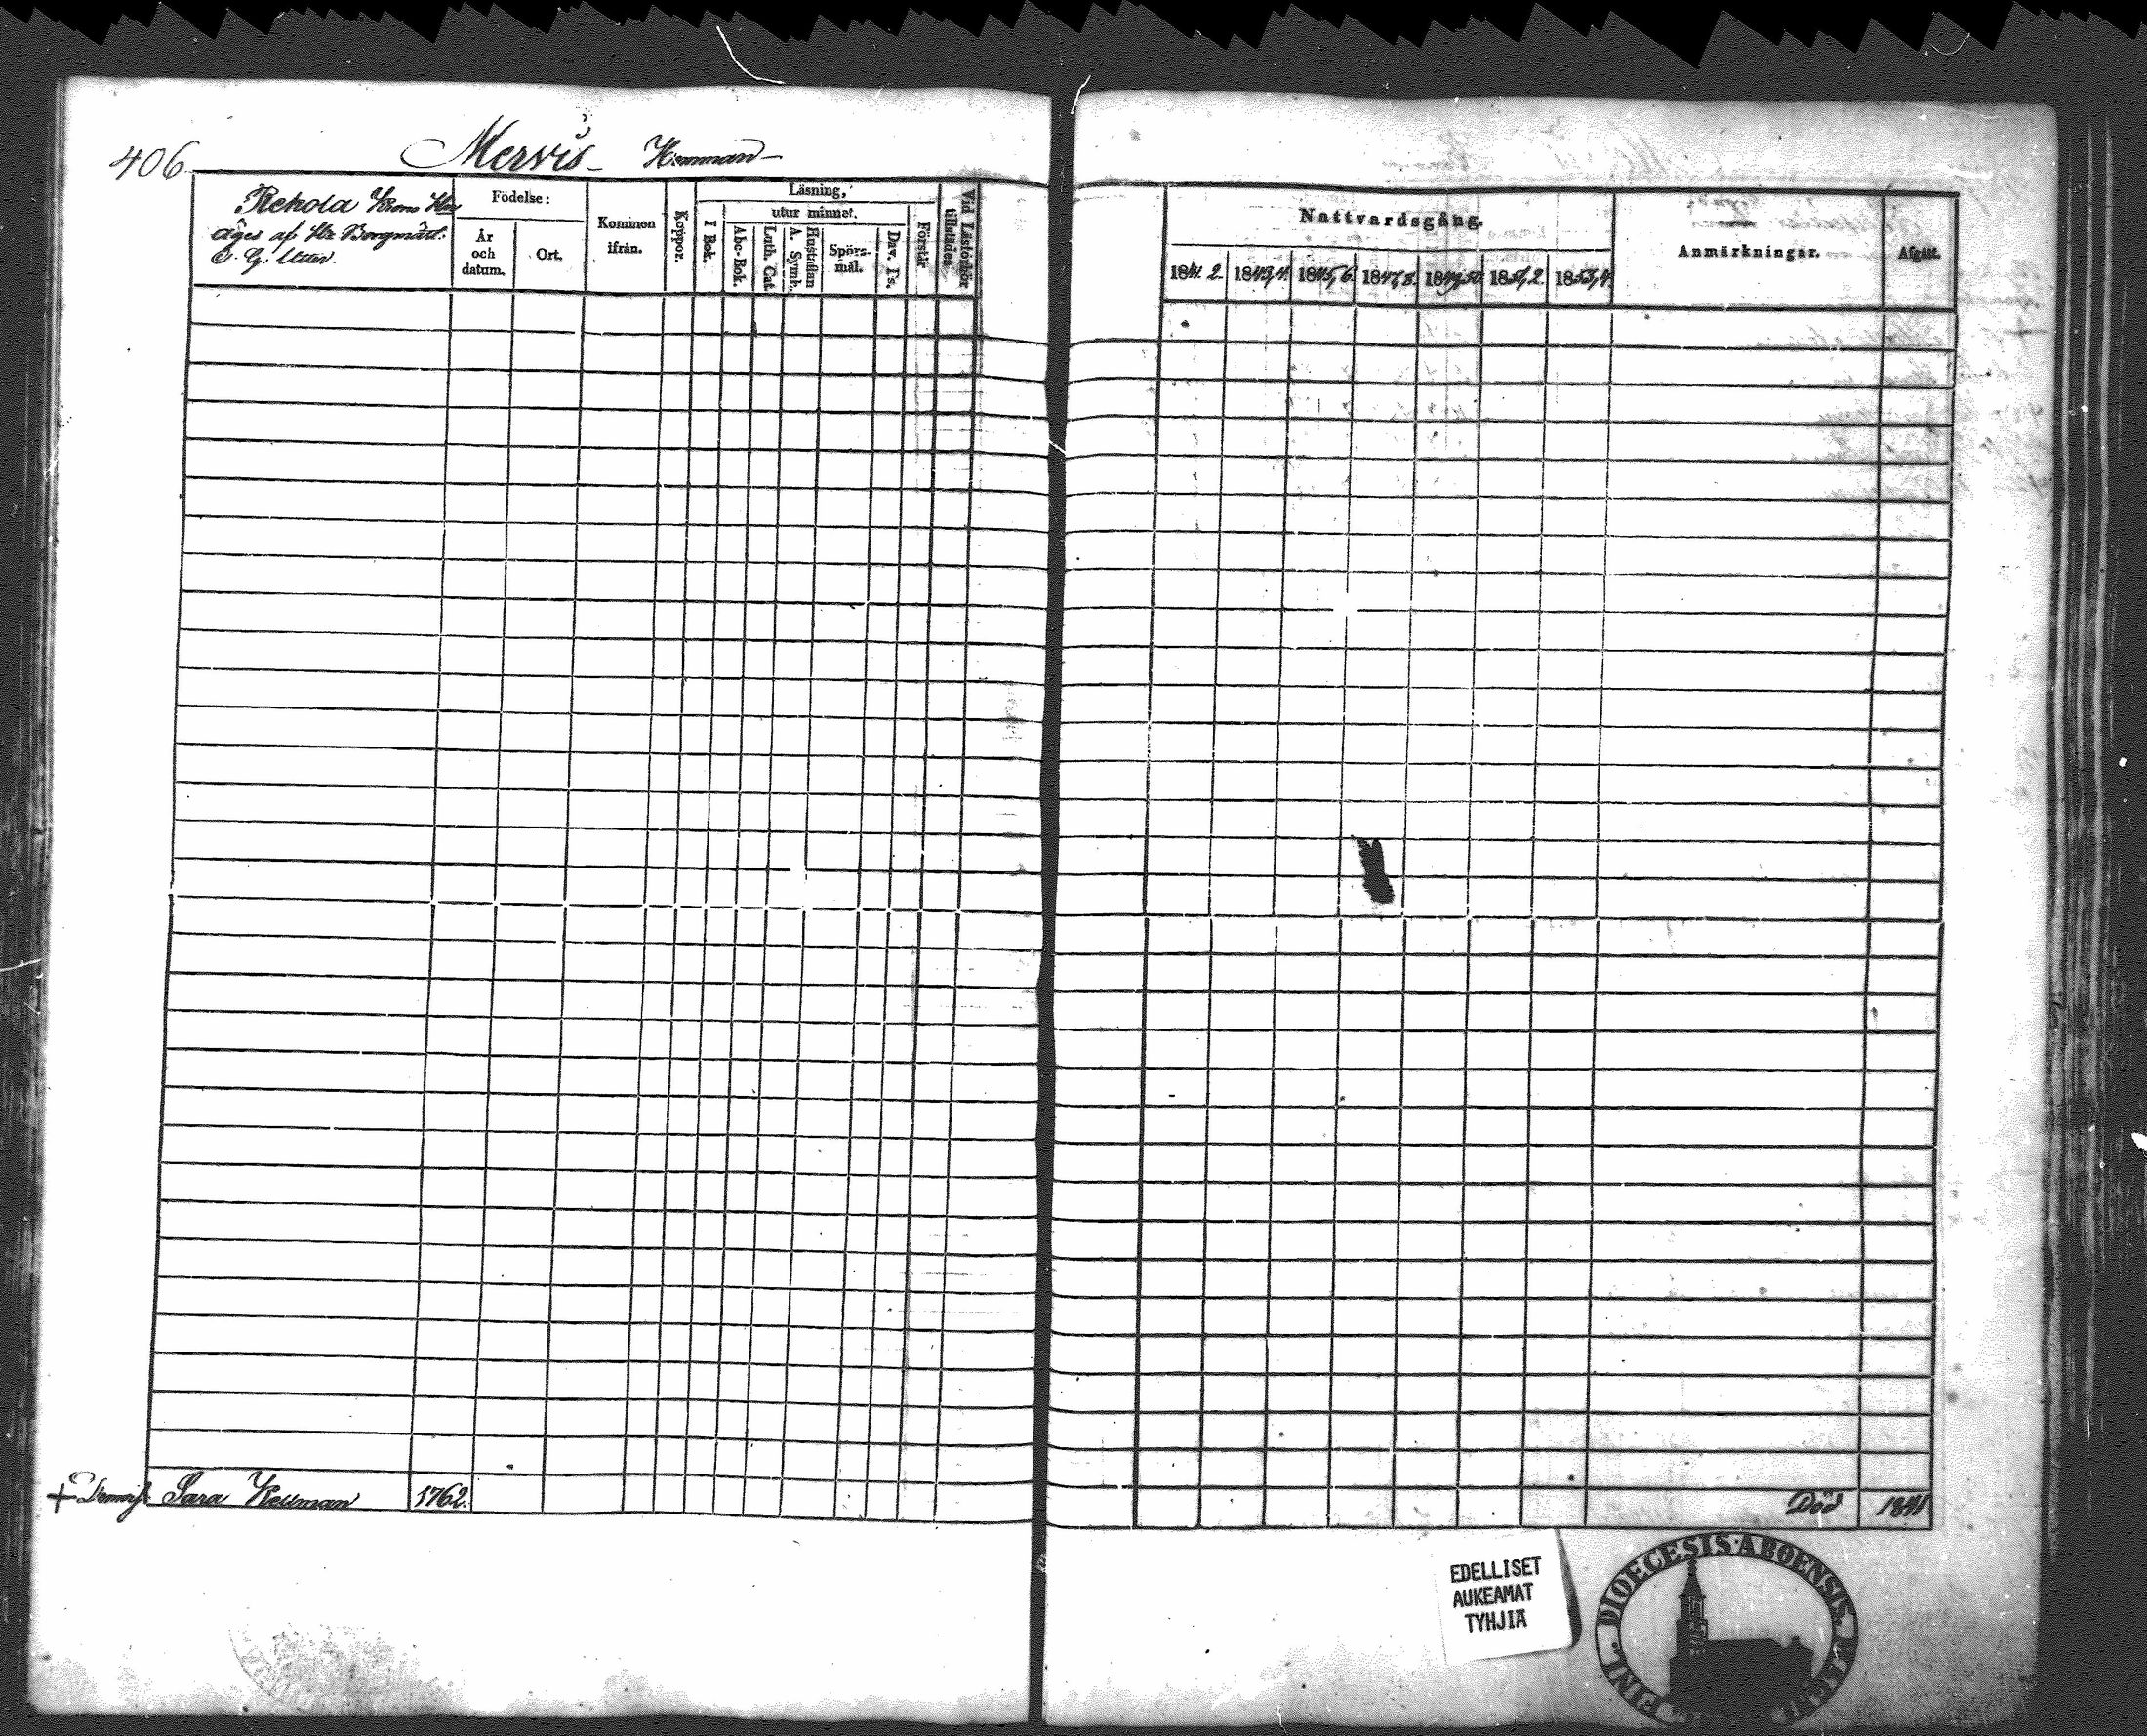 406
Mervis
Rekola Krono Hem
äges af Hr Borgmäst.
C. G. Utter.
Födelse:
År
och
datum.
Ort.
Kommen
ifrån.
Koppor.
Läsning,
I Bok.
utur minnet.
Abc-Bok.
Luth. Cat
A. Symb.
Hustaflan
Spörs-
mål.
Dav. Ps.
Förstår
Vid Läsförhör
tillstädes
Nattvardsgång.
1841. 2. 1843,4. 1845,6. 1847,8. 1849,50 1851,2. 1853,4.
Anmärkningar.
Afgått.
Sara Kellman 1762. Död 1841
EDELLISET
AUKEAMAT
TYHJIÄ
DIOECESIS ABOENSIS